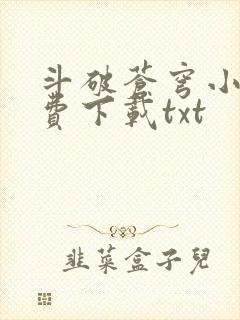 斗破蒼穹小
費下載txt
韭菜盒子兒